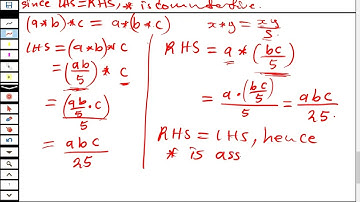 since LHS=RHS, * is commutative.
(a*b)*c = a*(b*c)
x*y = xy/5
LHS = (a*b)*c
= (ab/5) * c
= (ab/5 · c)/5
= abc/25
RHS = a * (bc/5)
= a·(bc/5)/5 = abc/25.
RHS = LHS, hence
* is ass